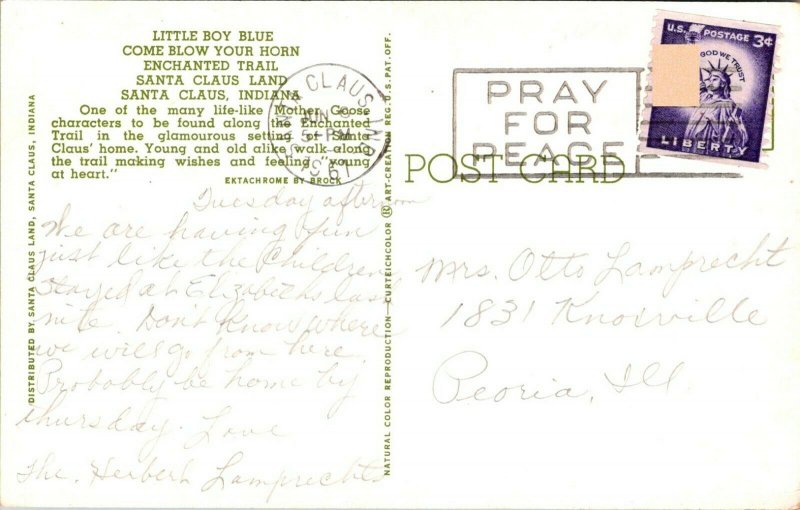 LITTLE BOY BLUE
COME BLOW YOUR HORN
ENCHANTED TRAIL
SANTA CLAUS LAND
SANTA CLAUS, INDIANA
One of the many life-like Mother Goose
characters to be found along the Enchanted
Trail in the glamourous setting of Santa
Claus' home. Young and old alike walk along
the trail making wishes and feeling "young
at heart."
EKTACHROME BY BROCK
DISTRIBUTED BY SANTA CLAUS LAND, SANTA CLAUS, INDIANA
Tuesday afternoon
We are having fun
just like the children
Stayed at Elizabeths last
nite. Don't know where
we will go from here.
Probably be home by
thursday. Love
The. Herbert Lamprechts
NATURAL COLOR REPRODUCTION - CURTEICHCOLOR ® ART-CREATION REG. U.S. PAT. OFF.
SANTA CLAUS, IND.
PM
PRAY
FOR
PEACE
U.S. POSTAGE 3¢
GOD WE TRUST
LIBERTY
POST CARD
Mrs. Otto Lamprecht
1831 Knoxville
Peoria, Ill